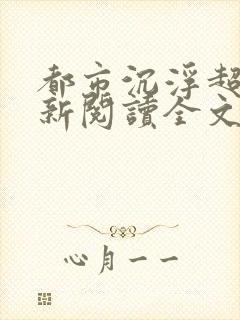 都市沉浮超
新閱讀全文
心月一一